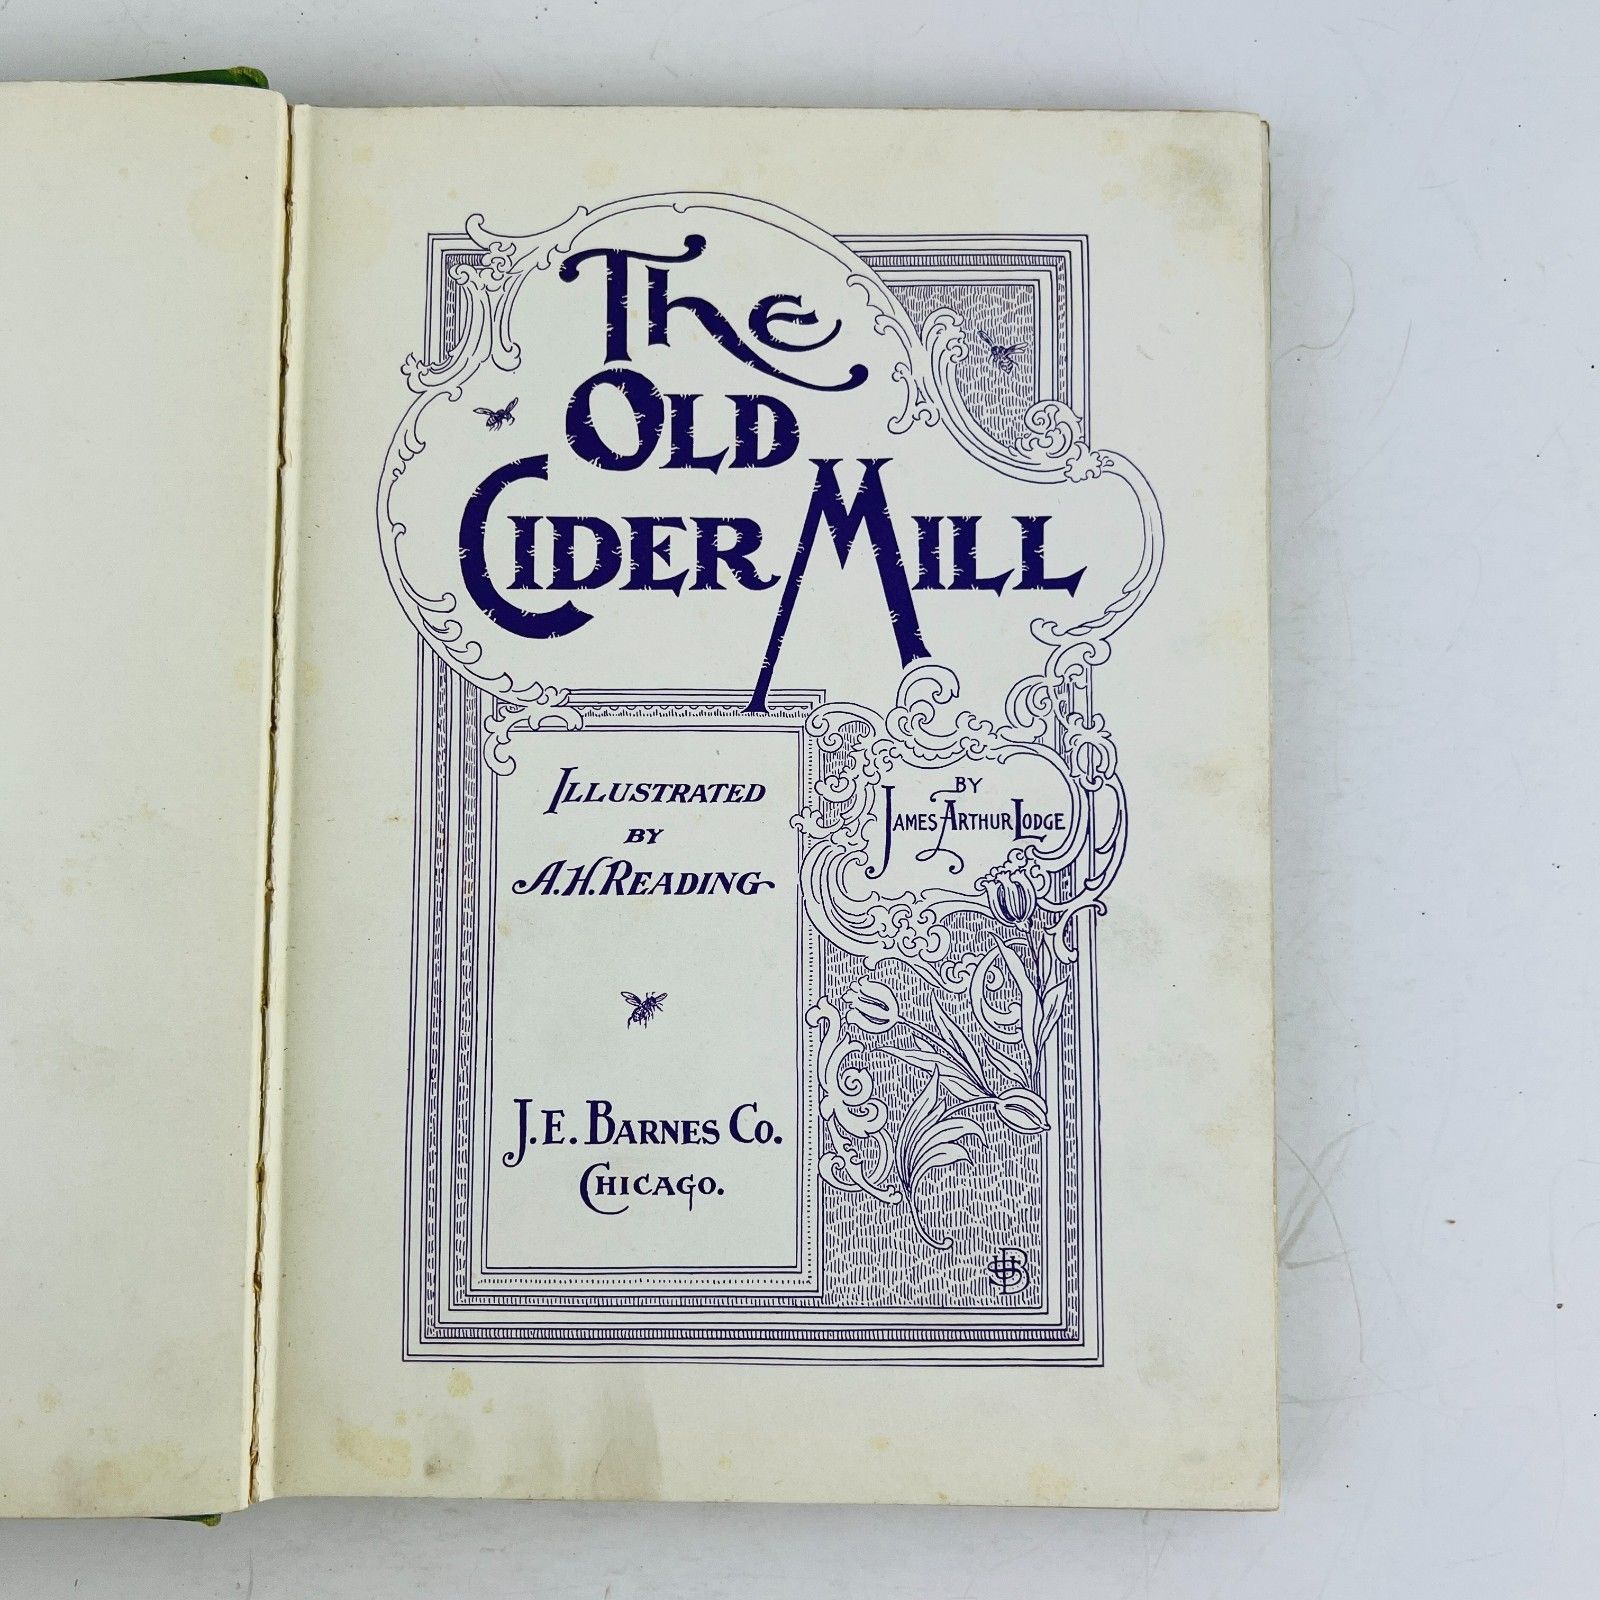 The
Old
Cider Mill
Illustrated
by
A. H. Reading
by
James Arthur Lodge
J. E. Barnes Co.
Chicago.